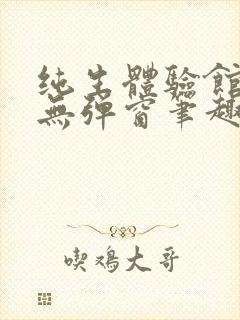 纯生體驗館
無彈窗笔趣
喫鸡大哥